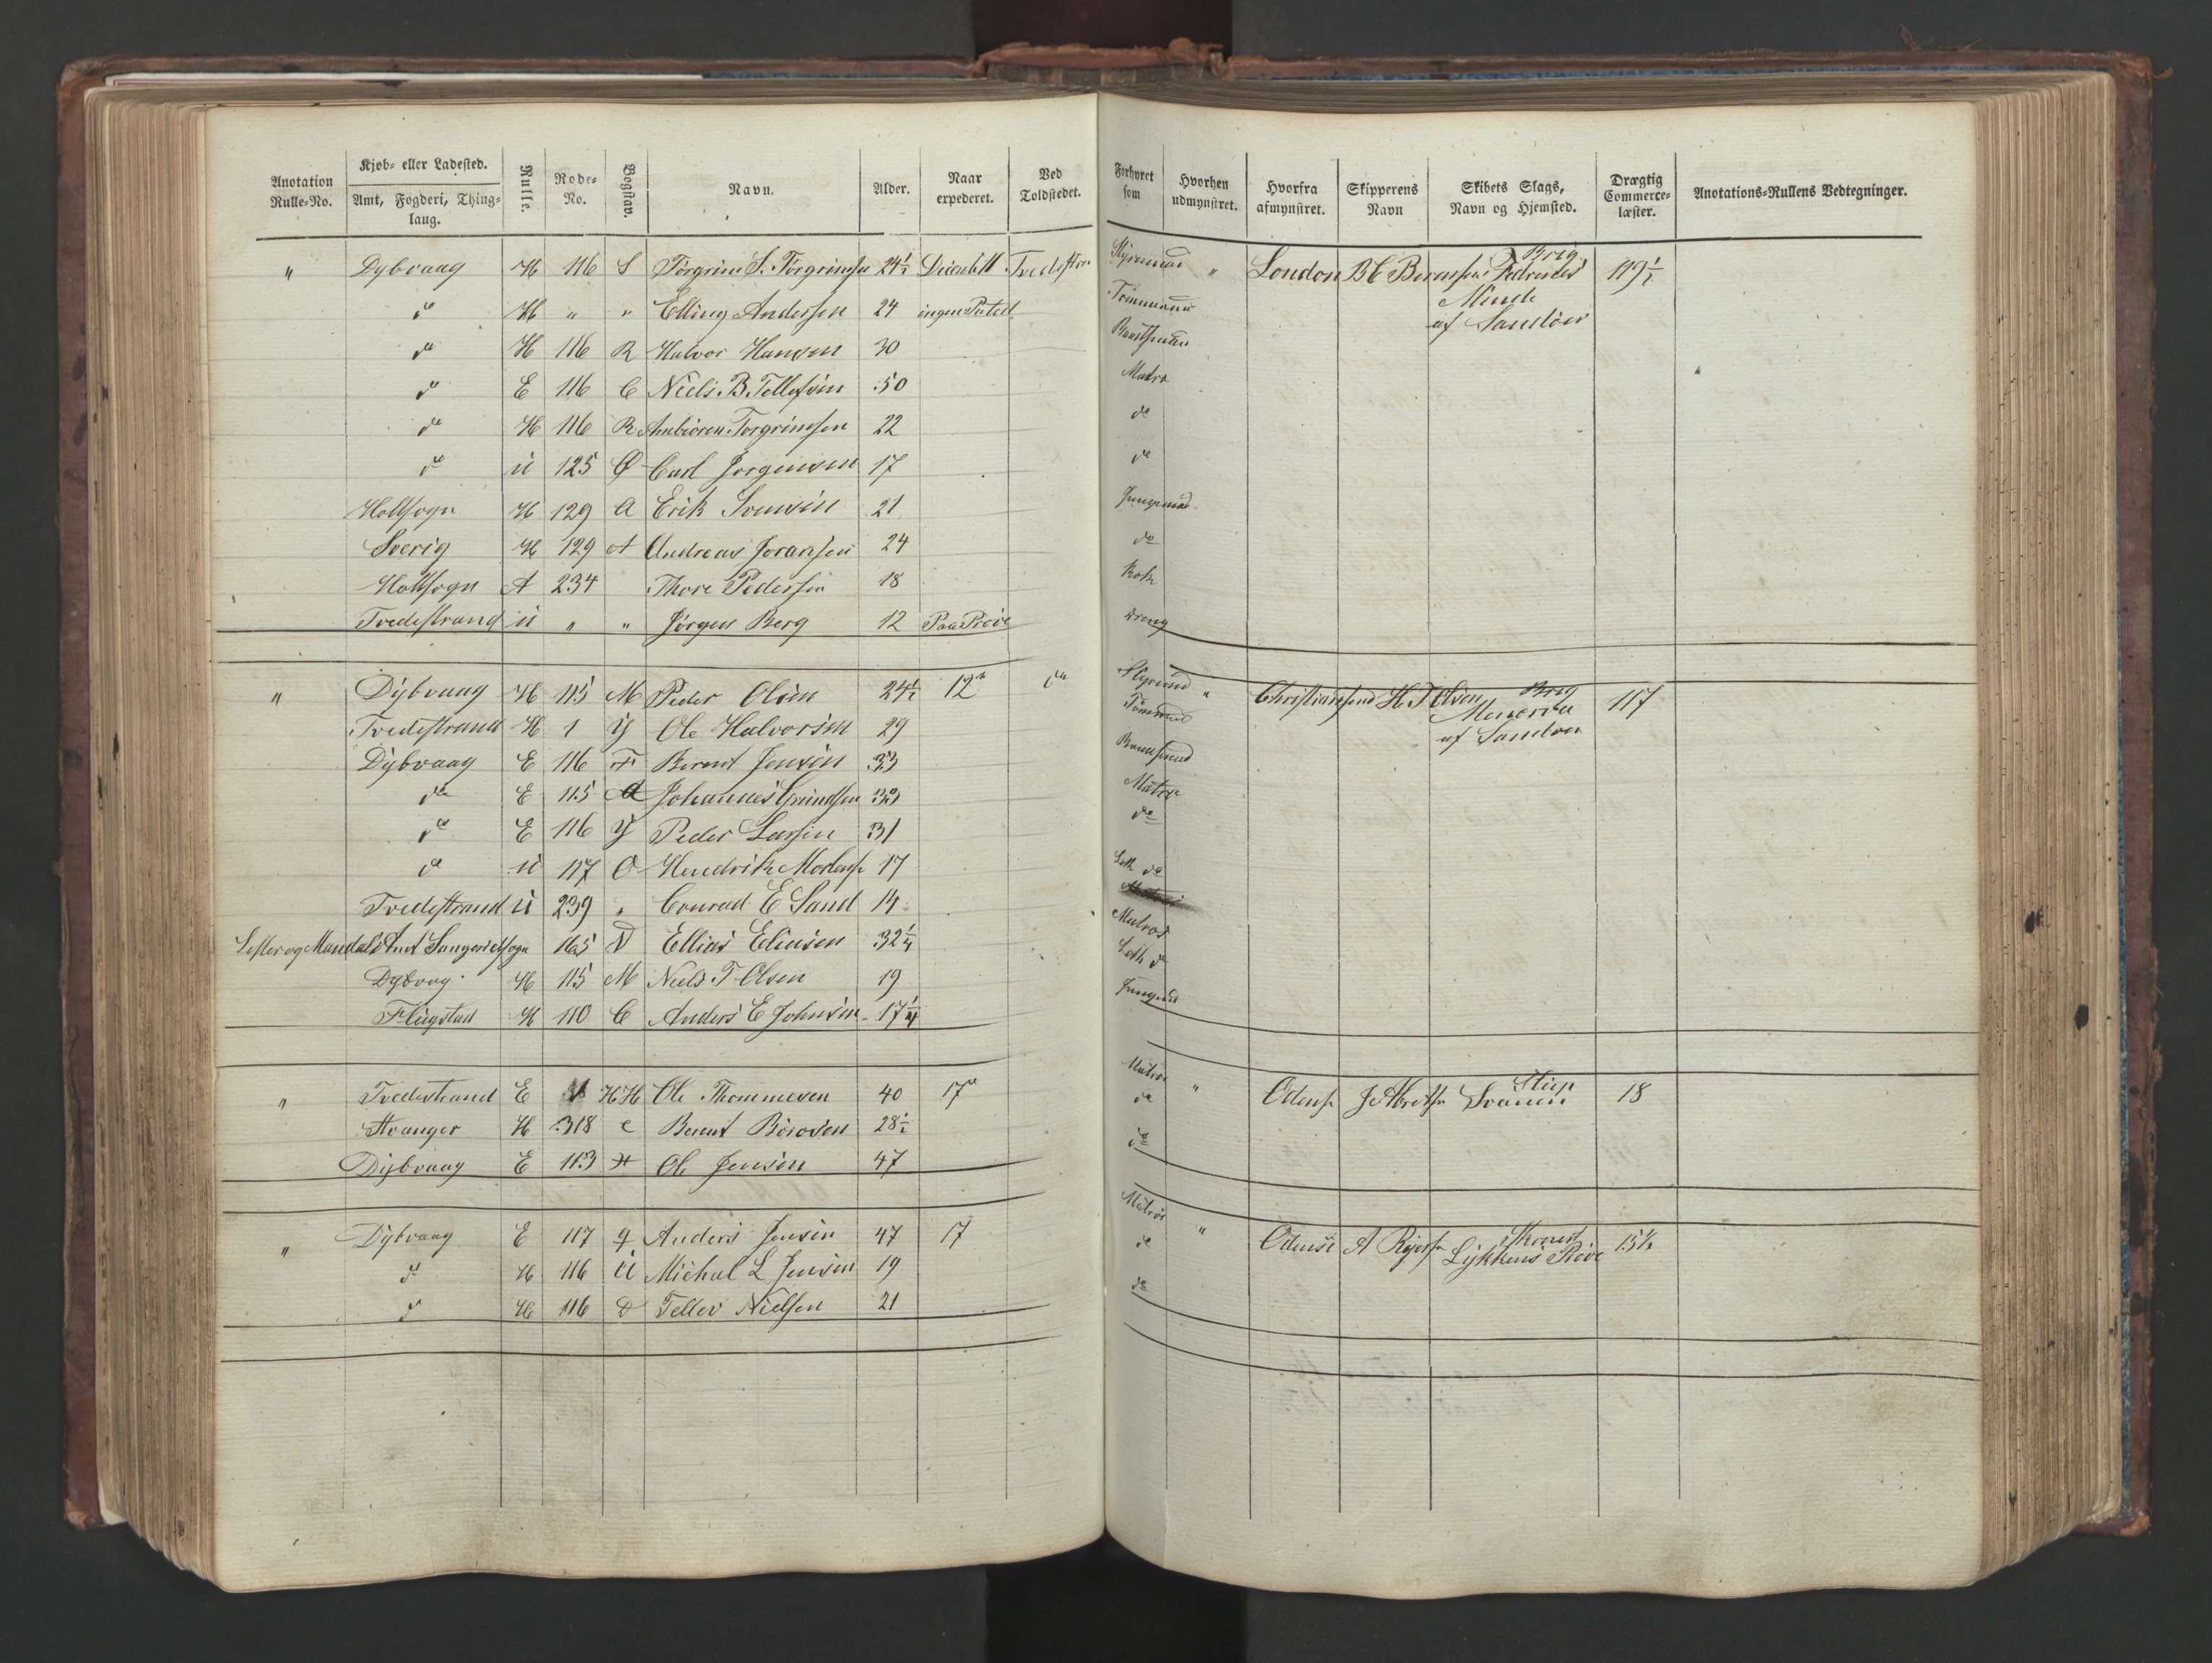 Anotation Rulle-No. Kjøb- eller Ladested. Amt, Fogderi, Thinglaug. Rulle. Rode-No. Bogstav. Navn. Alder. Naar expederet. Ved Toldstedet. Forhyret som Hvorhen udmynstret. Hvorfra afmynstret. Skipperens Navn Skibets Slags, Navn og Hjemsted. Drægtig Commerce-læster. Anotations-Rullens Vedtegninger.
" Dybvaag H 116 S Törgrim S. Törgrimsen 24½ Styrmand " London Brig 119½
do H " " Elling Andersen 24 Tömmermand Minde
do H 116 R Halvor Hansen 30 Baadsmand af Sandöen
do E 116 C Niels B. Tellefsen 50 Matro
do H 116 R Torgrimsen 22 do
do U 125 Ø Carl Jörgensen 17 do
Holtsogn H 129 A Erik Svensen 21 Jungmand
Sverig H 129 A Andreas 24 do
Holtsogn A 234 Thore Pedersen 18 Kok
Tvedestrand U " " Jörgen Berg 12 Paa Pröve Dreng
" Dybvaag H 115 M Peder Olsen 24½ 12te do Styrmd " Christiansund H T Olsen Brig 117
Tvedestrand H 1 Y Ole Halvorsen 29 Tömmermd af Sandöen
Dybvaag E 116 F Berent Jensen 33 Baadsmd
do E 115 A Johannes 33 Matro
do E 116 Y Peder Larsen 31 do
do U 117 O Hendrik Mortens 17 Leth do
Tvedestrand U 239 " Conrad E Sand 14
Lister og Mandals Amt 165 D Ellias Eliasen 32¼ Matros
Dybvag H 115 M Niels T Olsen 19 Leth do
H 110 C Anders E Johnsen 17¼ Jungmd
" Tvedestrand E HH Ole Thommesen 40 17de Matros " Odense Slup Svanen 18
Stvanger H 318 c Berent 28½ do
Dybvaag E 113 H Ole Jensen 47 do
" Dybvaag E 117 Anders Jensen 47 17 Matros " Odense A Lykkens Pröve 15½
do H 116 U Michal L Jensen 19 do
do H 116 D Tellev Nielsen 21 do